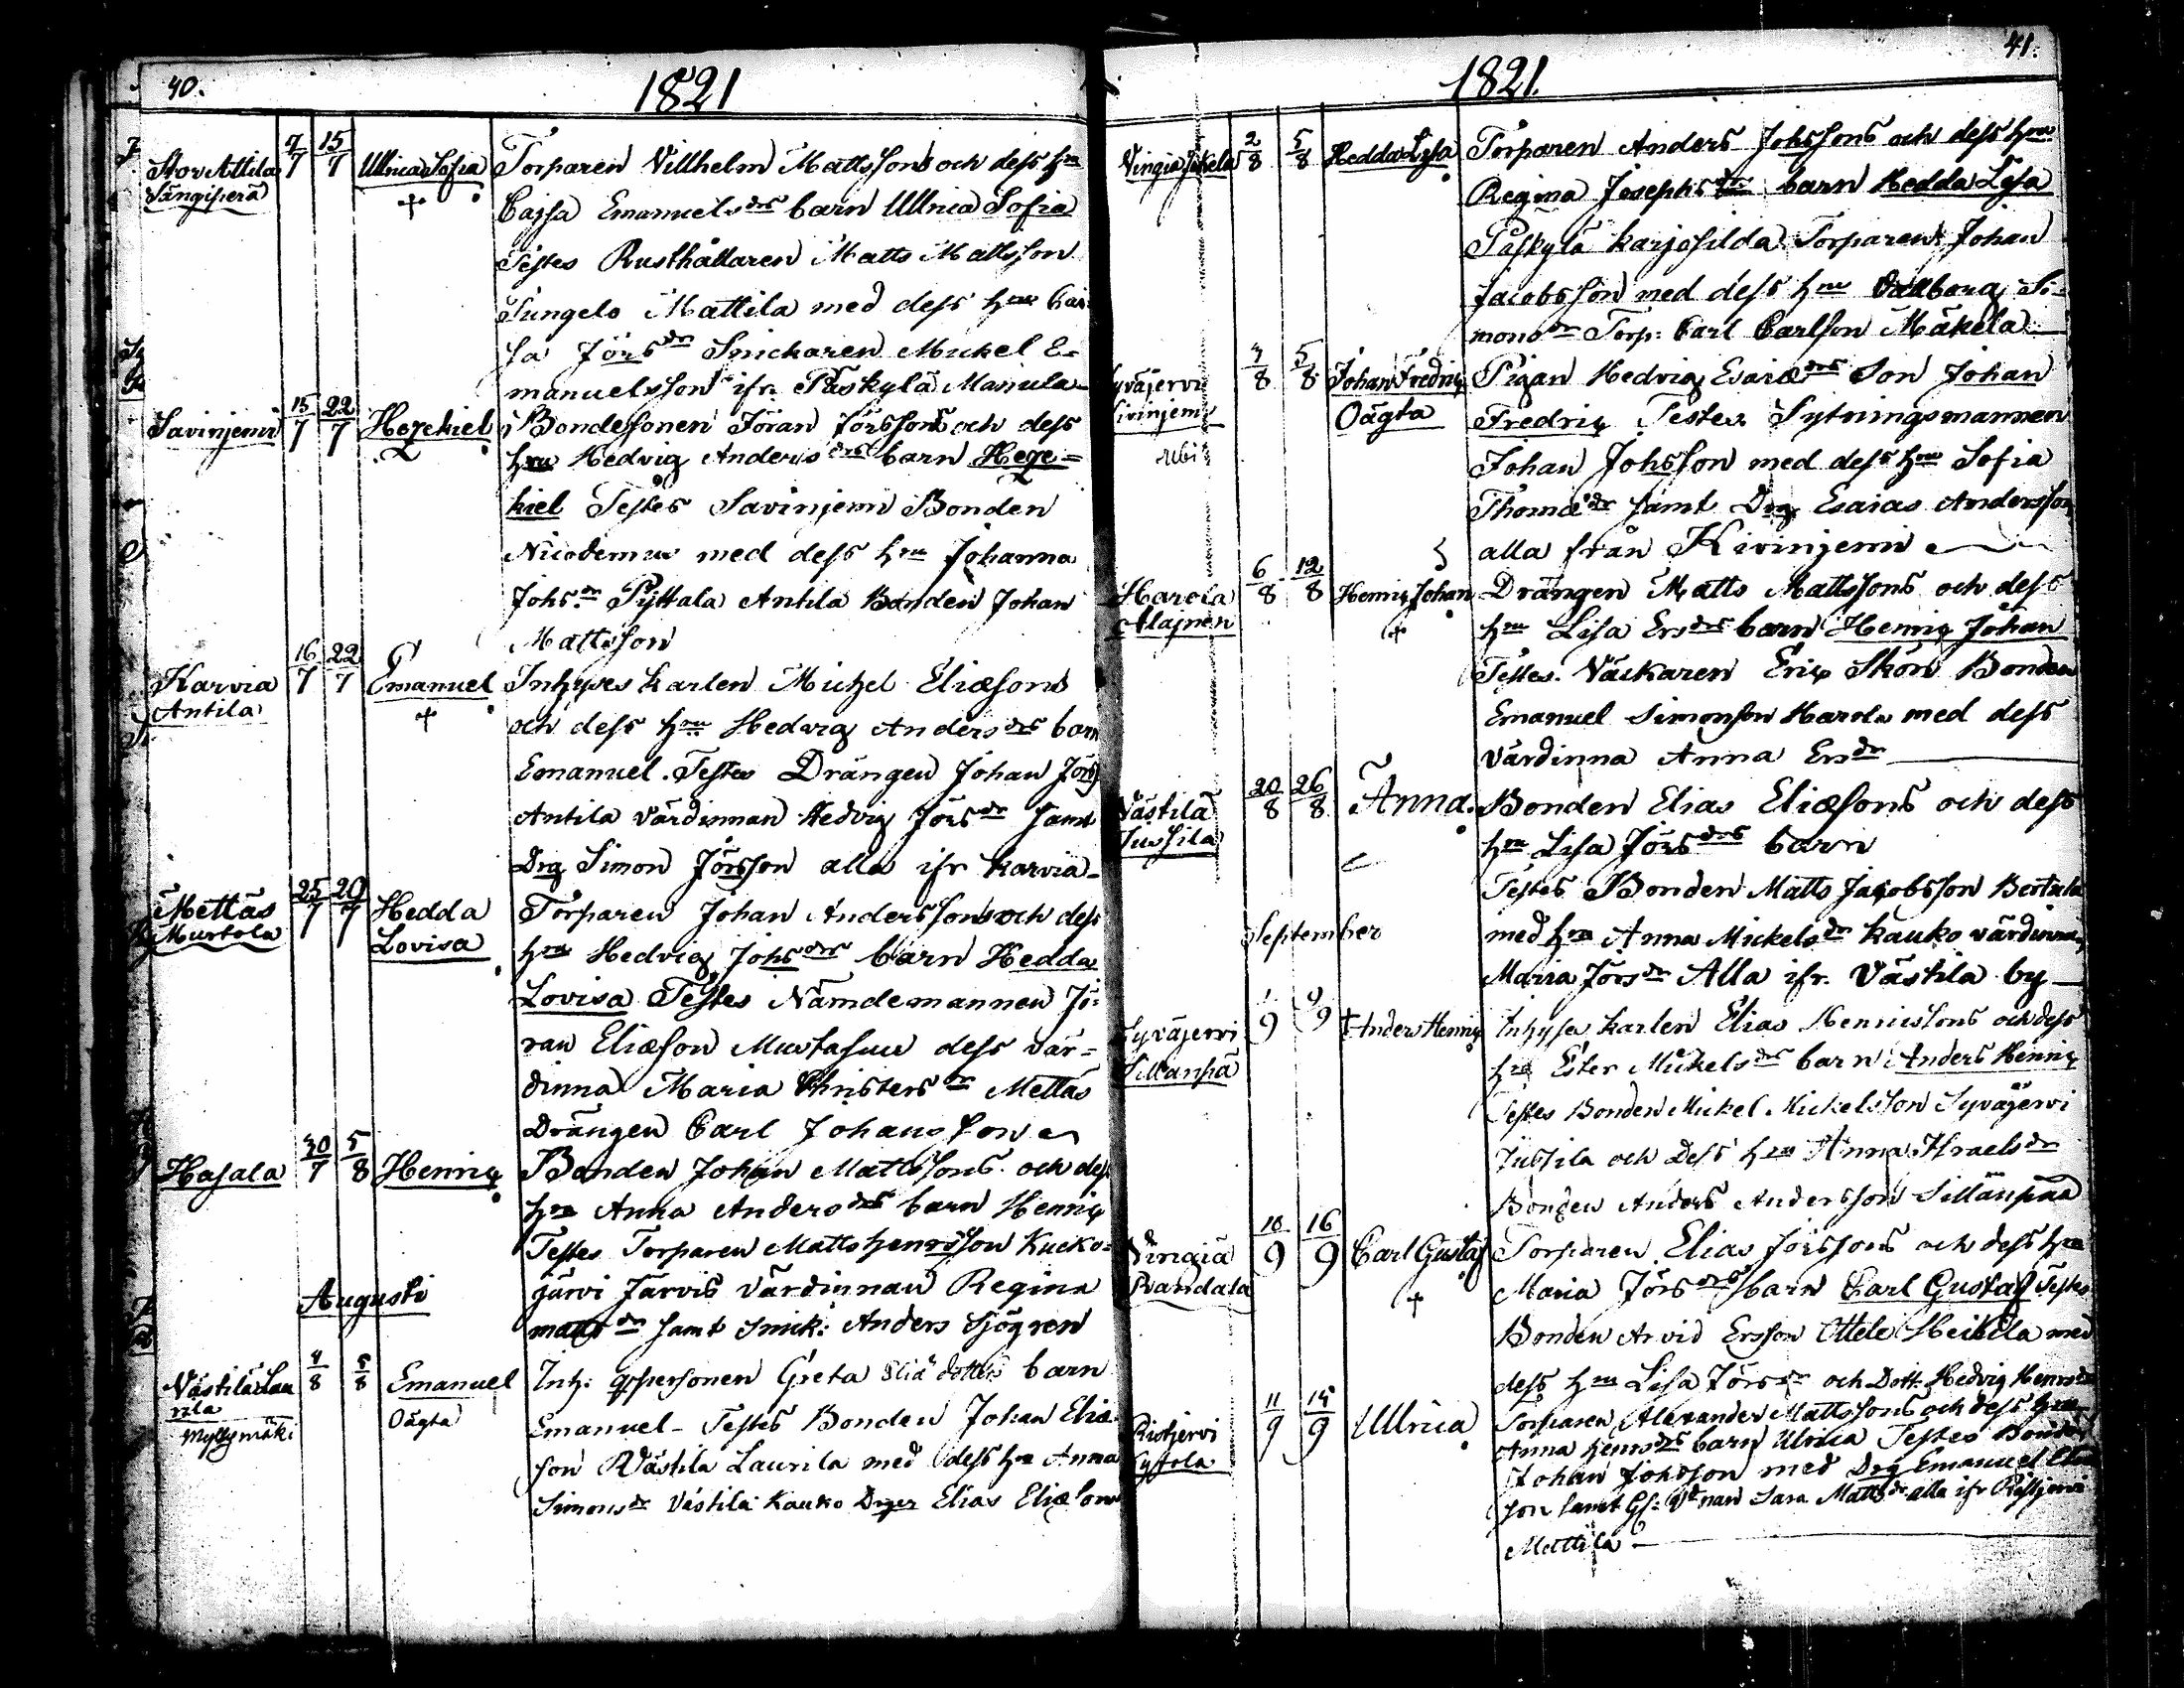 40.
1821
Stor Attila
Sängiperä
7/7 15/7
Ullrica Sofia
Torparen Villhelm Mattssons och dess hru
Cajsa Emanuelsdrs barn Ullrica Sofia
Testes Rusthållaren Matts Mattsson
Sungelo Mattila med dess hru Cai-
sa Jörsdr Snickaren Mickel E-
manuelsson ifr. Påskylä Manula
Savinjemi
15/7 22/7
Hezekiel
Bondesonen Jöran Jörssons och dess
hru Hedvig Andersdrs barn Heze=
kiel Testes Savinjemi Bonden
Nicodemus med dess hru Johanna
Johsdr Pyttala Antila Bonden Johan
Mattsson
Karvia
Antila
16/7 22/7
Emanuel
Inhyses karlen Michel Eliæsons
och dess hru Hedvig Andersdrs barn
Emanuel. Testes Drängen Johan Jörss
Antila värdinnan Hedvig Jörsdr samt
Drg Simon Jörsson alla ifr Karvia
Mettäs
Murtola
25/7 29/7
Hedda
Lovisa
Torparen Johan Anderssons och dess
hru Hedvig Johsdrs barn Hedda
Lovisa Testes Nämdemannen Jö-
ran Eliæson Mustasuu dess vär=
dinna Maria Christersdr Mettäs
Drängen Carl Johansson
Hasala
30/7 5/8
Henriq
Bonden Johan Mattssons och dess
hru Anna Andersdrs barn Henriq
Testes Torparen Matts Henrsson Kucko=
järvi Järvis värdinnan Regina
Mattsdr samt Snick: Anders Sjögren
Augusti
Västilä Lau
rila
Myllymäki
4/8 5/8
Emanuel
Oägta
Inh: qvpersonen Greta Eliædotters barn
Emanuel - Testes Bonden Johan Eliæ
son Västila Laurila med dess hru Anna
Simonsdr Västilä Kauko Drger Elias Eliæson
41.
1821.
Vingiä Jskelä
2/8 5/8
Hedda Lisa
Torparen Anders Johssons och dess hru
Regina Josephsdrs barn Hedda Lisa
Påskylä karjosilda Torparen Johan
Jacobsson med dess hru Valborg Si-
monsdr Torp: Carl Carlson Mäkelä
Syväjervi
Kivinjemi
4/8 5/8
Johan Fredriq
Oägta
Pigan Hedvig Esaiædrs Son Johan
Fredriq Testes Sytningsmannen
Johan Johsson med dess hru Sofia
Thomædr samt Drg Esaias Andersson
alla från Kivinjemi
Harola
Alajnen
6/8 12/8
Henriq Johan
Drängen Matts Mattssons och dess
hru Lisa Ersdrs barn Henriq Johan
Testes. Väckaren Eriq Skön Bonden
Emanuel Simonson Harola med dess
värdinna Anna Ersdr
Västilä
Jussila
20/8 26/8
Anna.
Bonden Elias Eliæsons och dess
hru Lisa Jörsdrs barn
Testes Bonden Matts Jacobsson Bertula
med hru Anna Mickelsdr Kauko värdinna
Maria Jörsdr Alla ifr. Västila by
September
Syväjervi
Sillanpä
1/9 9/9
Anders Henriq
Inhyses karlen Elias Henrissons och dess
hru Ester Mickelsdrs barn Anders Henriq
Testes Bonden Mickel Mickelsson Syväjervi
Jussila och Dess hru Anna Israelsdr
Bonden Anders Andersson Sillänpää
Vingiä
Randala
10/9 16/9
Carl Gustaf
Torparen Elias Jörssons och dess hru
Maria Jörsdrs barn Carl Gustaf Testes
Bonden Arvid Ersson Ottele Heikila med
dess hru Lisa Jörsdr och Dott. Hedvig Henrsdr
Ristjervi
11/9 15/9
Ullrica
Torparen Alexander Mattssons och dess hru
Anna Henrsdrs barn Ulrica Testes Bonden
Johan Johsson med Drg Emanuel
son samt Gl: Vdnan Sara Mattsdr alla ifr Ristjervi
Mattila